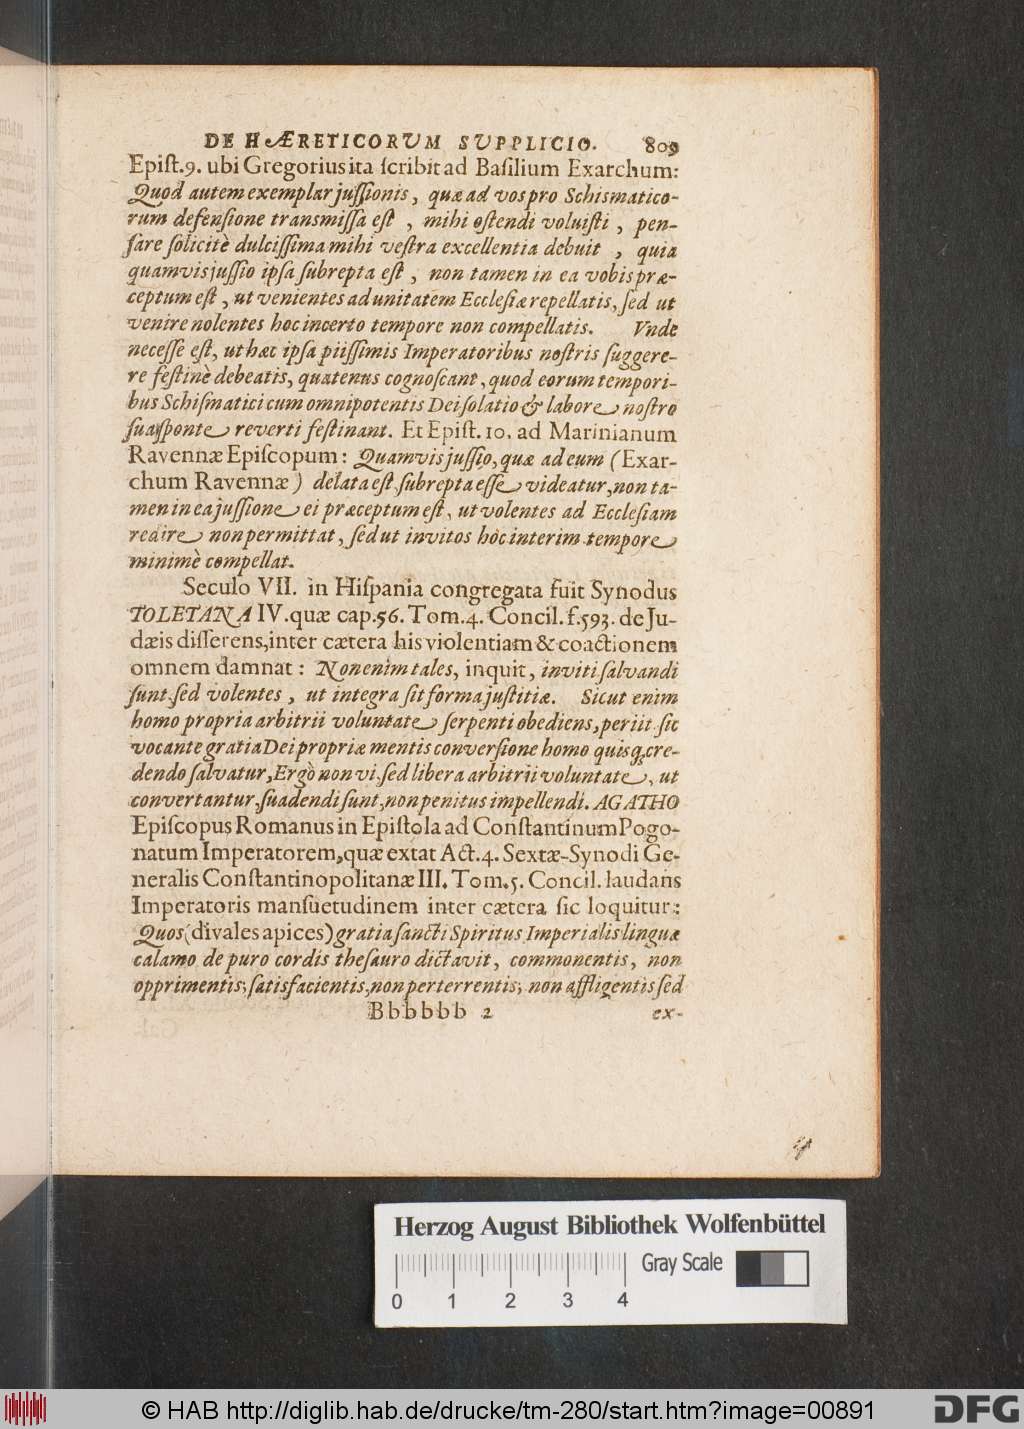 DE HÆRETICORUM SUPPLICIO. 809
Epiſt.9. ubi Gregorius ita ſcribit ad Baſilium Exarchum:
Quod autem exemplar juſſionis, quæ ad vos pro Schismatico-
rum defenſione transmiſſa eſt, mihi oſtendi voluiſti, pen-
ſare ſolicitè dulciſſima mihi veſtra excellentia debuit, quia
quamvis juſſio ipſa ſubrepta eſt, non tamen in ea vobis præ-
ceptum eſt, ut venientes ad unitatem Eccleſiæ repellatis, ſed ut
venire nolentes hoc incerto tempore non compellatis. Vnde
neceſſe eſt, ut hæc ipſa piiſſimis Imperatoribus noſtris ſuggere-
re feſtinè debeatis, quatenus cognoſcant, quod eorum tempori-
bus Schiſmatici cum omnipotentis Dei ſolatio & labore noſtro
ſua ſponte reverti feſtinant. Et Epiſt. 10. ad Marinianum
Ravennæ Epiſcopum: Quamvis juſſio, quæ ad eum (Exar-
chum Ravennæ) delata eſt, ſubrepta eſſe videatur, non ta-
men in ea juſſione ei præceptum eſt, ut volentes ad Eccleſiam
redire non permittat, ſed ut invitos hoc interim tempore
minimè compellat.
Seculo VII. in Hiſpania congregata fuit Synodus
TOLETANA IV. quæ cap.56. Tom.4. Concil. f.593. de Ju-
dæis diſſerens, inter cætera his violentiam & coactionem
omnem damnat: Non enim tales, inquit, inviti ſalvandi
ſunt, ſed volentes, ut integra ſit forma juſtitiæ. Sicut enim
homo propria arbitrii voluntate ſerpenti obediens, periit, ſic
vocante gratia Dei propriæ mentis converſione homo quisq; cre-
dendo ſalvatur, Ergò non vi, ſed libera arbitrii voluntate, ut
convertantur, ſuadendi ſunt, non penitus impellendi. AGATHO
Epiſcopus Romanus in Epiſtola ad Conſtantinum Pogo-
natum Imperatorem, quæ extat Act.4. Sextæ-Synodi Ge-
neralis Conſtantinopolitanæ III. Tom.5. Concil. laudans
Imperatoris manſuetudinem inter cætera ſic loquitur:
Quos (divales apices) gratia ſancti Spiritus Imperialis linguæ
calamo de puro cordis theſauro dictavit, commonentis, non
opprimentis; ſatisfacientis, non perterrentis; non affligentis ſed
Bbbbbb 2 ex-
Herzog August Bibliothek Wolfenbüttel
Gray Scale
0 1 2 3 4
© HAB http://diglib.hab.de/drucke/tm-280/start.htm?image=00891
DFG